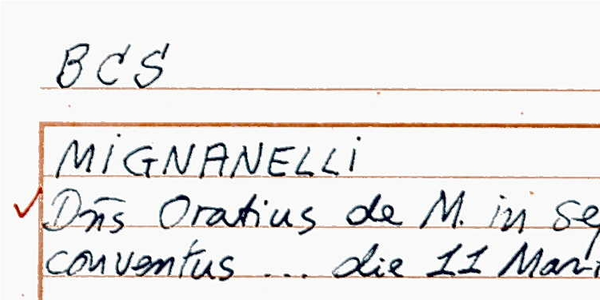 BCS
MIGNANELLI
Dñs Oratius de M. in
conventus ... die 11